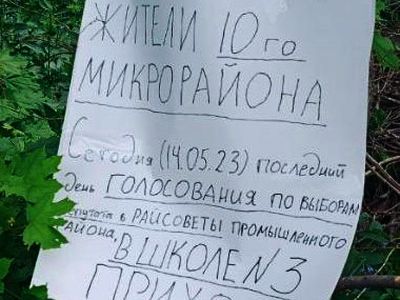 ЖИТЕЛИ 10го
МИКРОРАЙОНА
Сегодня (14.05.23) последний
день ГОЛОСОВАНИЯ ПО ВЫБОРАМ
в РАЙСОВЕТЫ ПРОМЫШЛЕННОГО
района,
В ШКОЛЕ N3